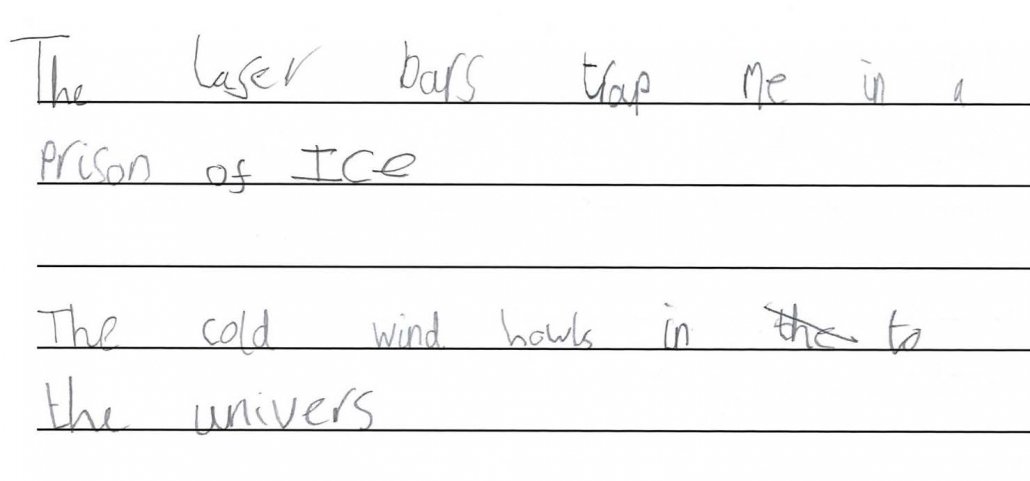 The laser bars trap me in a
prison of ICe
The cold wind howls in the to
the univers